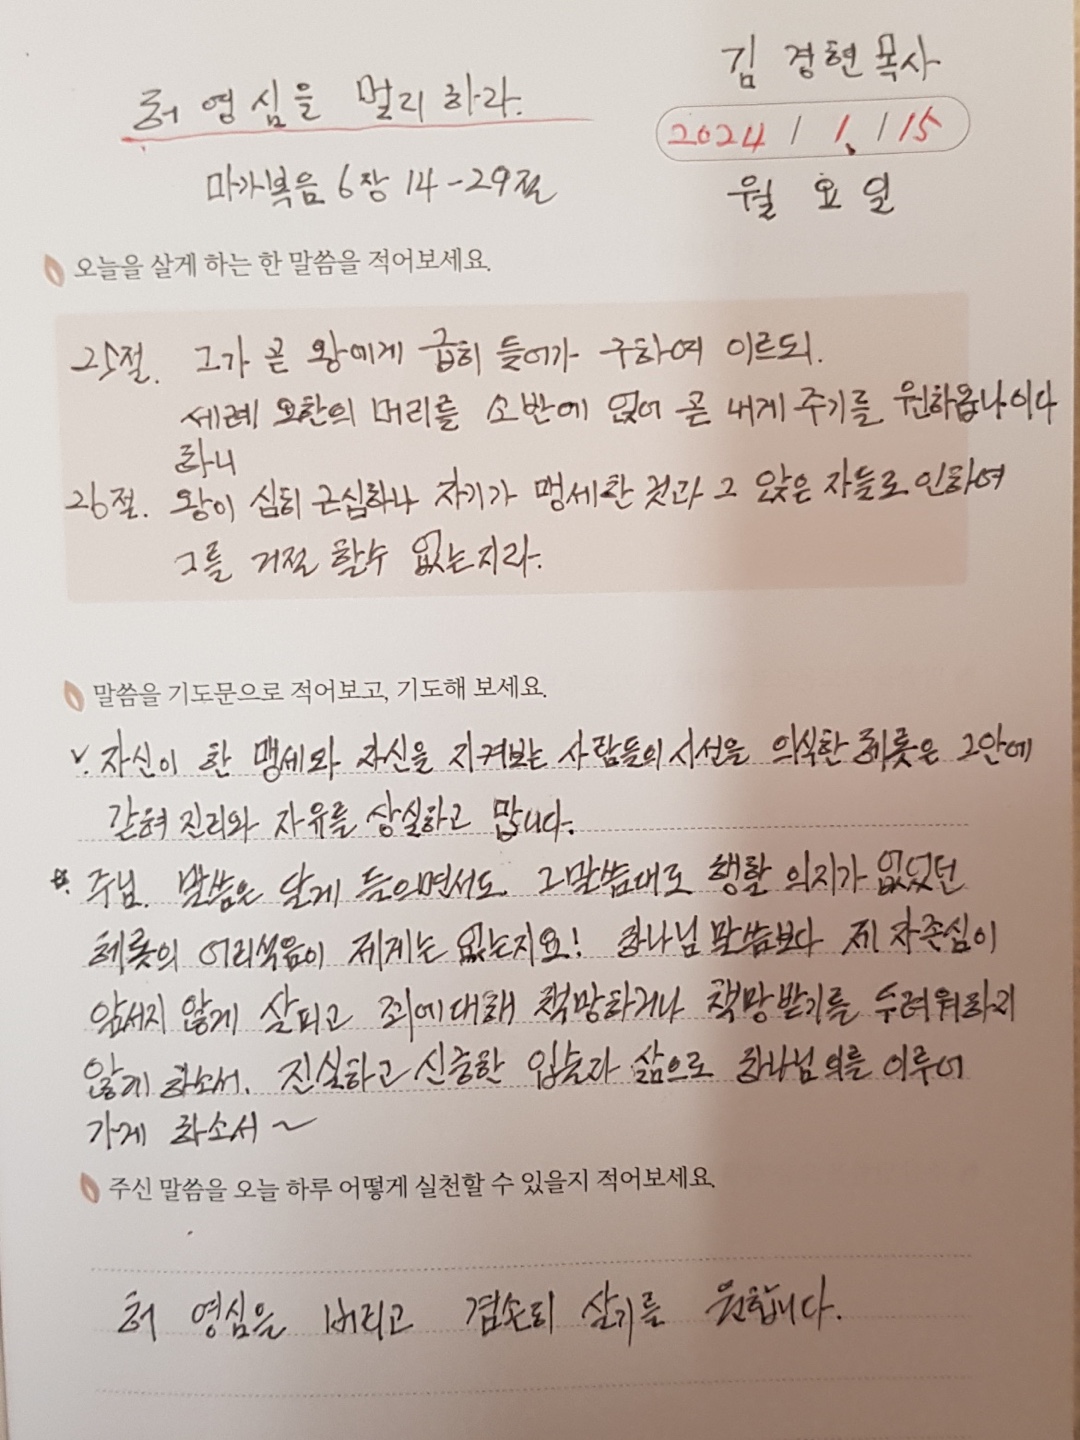 허영심을 멀리하라.
김경현목사
2024 / 1. / 15
마가복음 6장 14-29절
월요일
오늘을 살게 하는 한 말씀을 적어보세요.
25절. 그가 곧 왕에게 급히 들어가 구하여 이르되.
세례 요한의 머리를 소반에 얹어 곧 내게 주기를 원하옵나이다
하니
26절. 왕이 심히 근심하나 자기가 맹세한 것과 그 앉은 자들로 인하여
그를 거절 할수 없는지라.
말씀을 기도문으로 적어보고, 기도해 보세요.
v. 자신이 한 맹세와 자신을 지켜보는 사람들의 시선을 의식한 헤롯은 그안에
갇혀 진리와 자유를 상실하고 맙니다.
주님. 말씀은 달게 들으면서도 그말씀대로 행할 의지가 없었던
헤롯의 어리석음이 제게는 없는지요! 하나님 말씀보다 제 자존심이
앞서지 않게 살피고 죄에대해 책망하거나 책망받기를 두려워하지
않게 하소서. 진실하고 신중한 입술과 삶으로 하나님 의를 이루어
가게 하소서~
주신 말씀을 오늘 하루 어떻게 실천할 수 있을지 적어보세요.
허영심을 버리고 겸손히 살기를 원합니다.